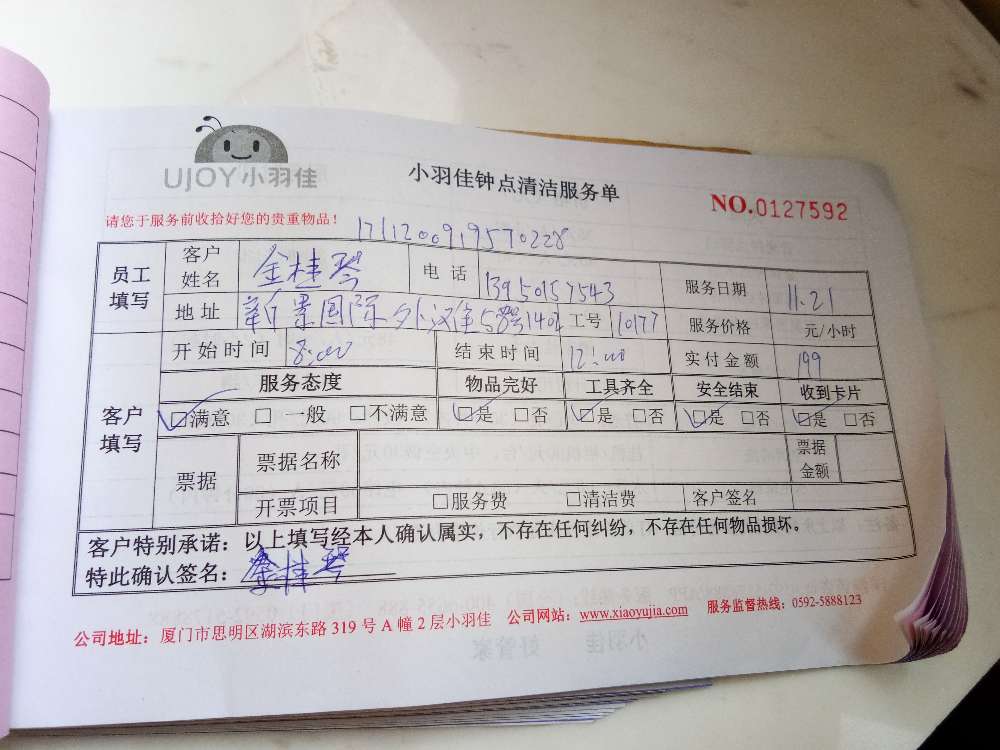 UJOY小羽佳
小羽佳钟点清洁服务单
NO.0127592
请您于服务前收拾好您的贵重物品！
171120091957 0228
员工填写 客户姓名 金桂琴 电话 13950157543 服务日期 11.21
地址 新景国际外滩58号1402 工号 10177 服务价格 元/小时
客户填写 开始时间 8:00 结束时间 12:00 实付金额 199
服务态度 物品完好 工具齐全 安全结束 收到卡片
☑满意 □一般 □不满意 ☑是 □否 ☑是 □否 ☑是 □否 ☑是 □否
票据 票据名称 票据金额
开票项目 □服务费 □清洁费 客户签名
客户特别承诺：以上填写经本人确认属实，不存在任何纠纷，不存在任何物品损坏。
特此确认签名：金桂琴
公司地址：厦门市思明区湖滨东路 319 号 A 幢 2 层小羽佳 公司网站：www.xiaoyujia.com 服务监督热线：0592-5888123